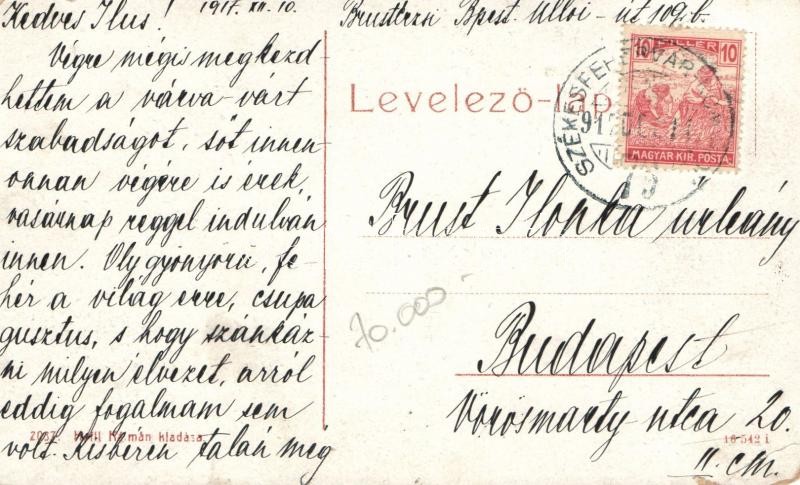 Kedves Ilus! 1917. XII. 10.
Végre mégis megkezd-
hettem a várva-várt
szabadságot, sőt innen-
onnan végére is érek,
vasárnap reggel indulván
innen. Oly gyönyörű, fe-
hér a világ erre, csupa
gusztus, s hogy szánkáz-
ni milyen élvezet, arról
eddig fogalmam sem
volt. Kisbéren talán még
Bpest. Üllői - út 109. b.
Levelező-lap
10 FILLÉR 10
MAGYAR KIR. POSTA
SZÉKESFEHÉRVÁR
Brust Ilonka urleány
70.000
Budapest
Vörösmarty utca 20.
II. em.
Kálmán kiadása.
16 542 I